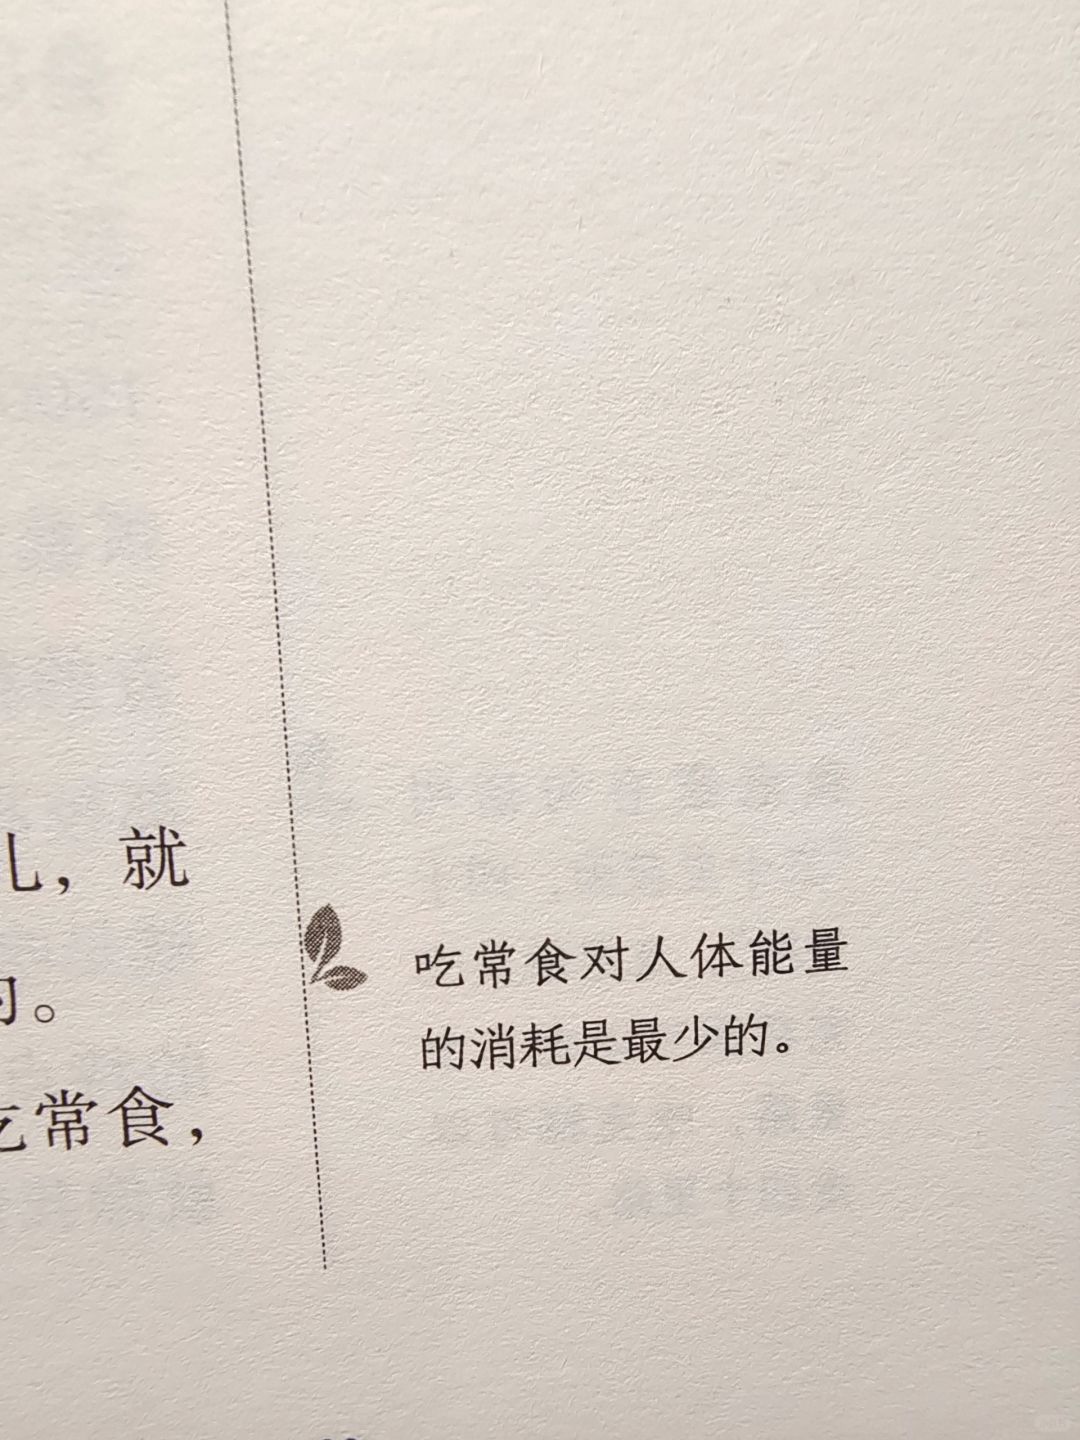 儿，就
的。
吃常食，
吃常食对人体能量
的消耗是最少的。